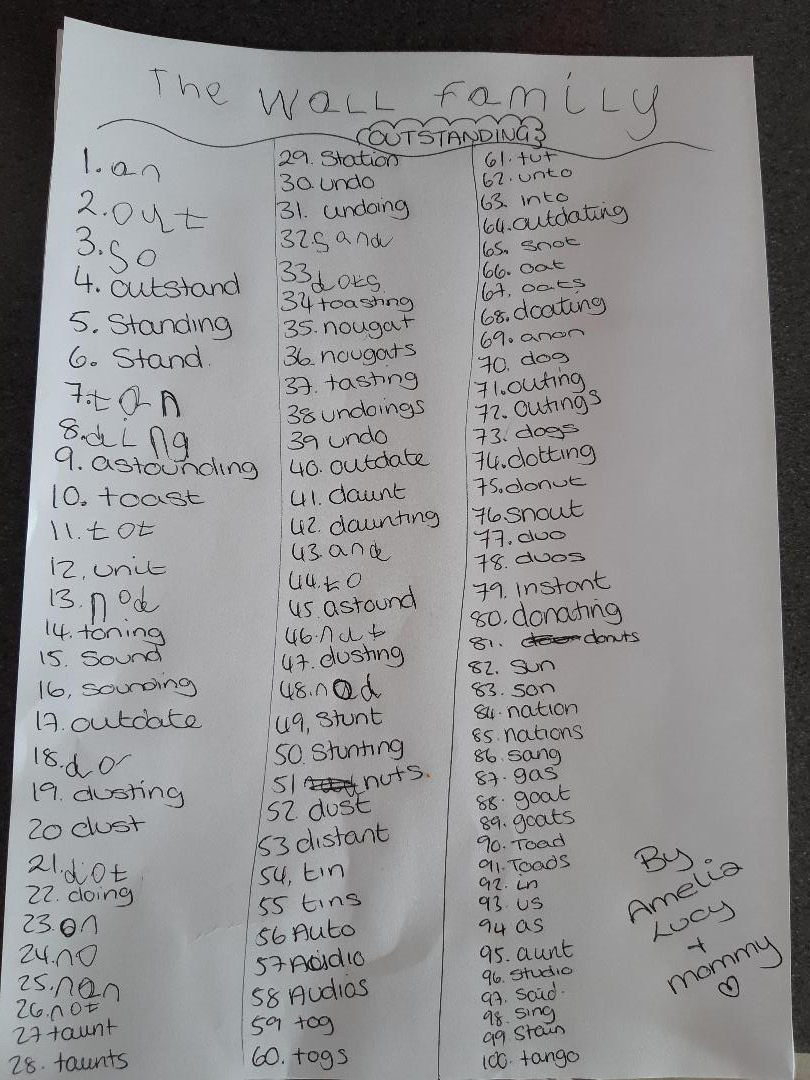 The Wall Family
OUTSTANDING
1. an
2. out
3. so
4. outstand
5. Standing
6. Stand.
7. tan
8. ding
9. astounding
10. toast
11. tot
12. unit
13. nod
14. toning
15. Sound
16. sounding
17. outdate
18. do
19. dusting
20 dust
21. dot
22. doing
23. on
24. no
25. nan
26. not
27 taunt
28. taunts
29. Station
30. undo
31. undoing
32 sand
33 dots
34 toasting
35. nougat
36. nougats
37. tasting
38 undoings
39 undo
40. outdate
41. daunt
42. daunting
43. and
44. to
45 astound
46. nut
47. dusting
48. nod
49, Stunt
50. Stunting
51 nuts.
52 dust
53 distant
54, tin
55 tins
56 Auto
57 Audio
58 Audios
59 tog
60. togs
61. tut
62. unto
63. into
64. outdating
65. snot
66. oat
67. oats
68. doating
69. anon
70. dog
71. outing
72. outings
73. dogs
74. dotting
75. donut
76 Snout
77. duo
78. duos
79. instant
80. donating
81. donuts
82. sun
83. son
84. nation
85. nations
86. sang
87. gas
88. goat
89. goats
90. Toad
91. Toads
92. in
93. us
94 as
95. aunt
96. Studio
97. Said.
98. Sing
99 Stain
100. tango
By
Amelia
Lucy
+
mommy